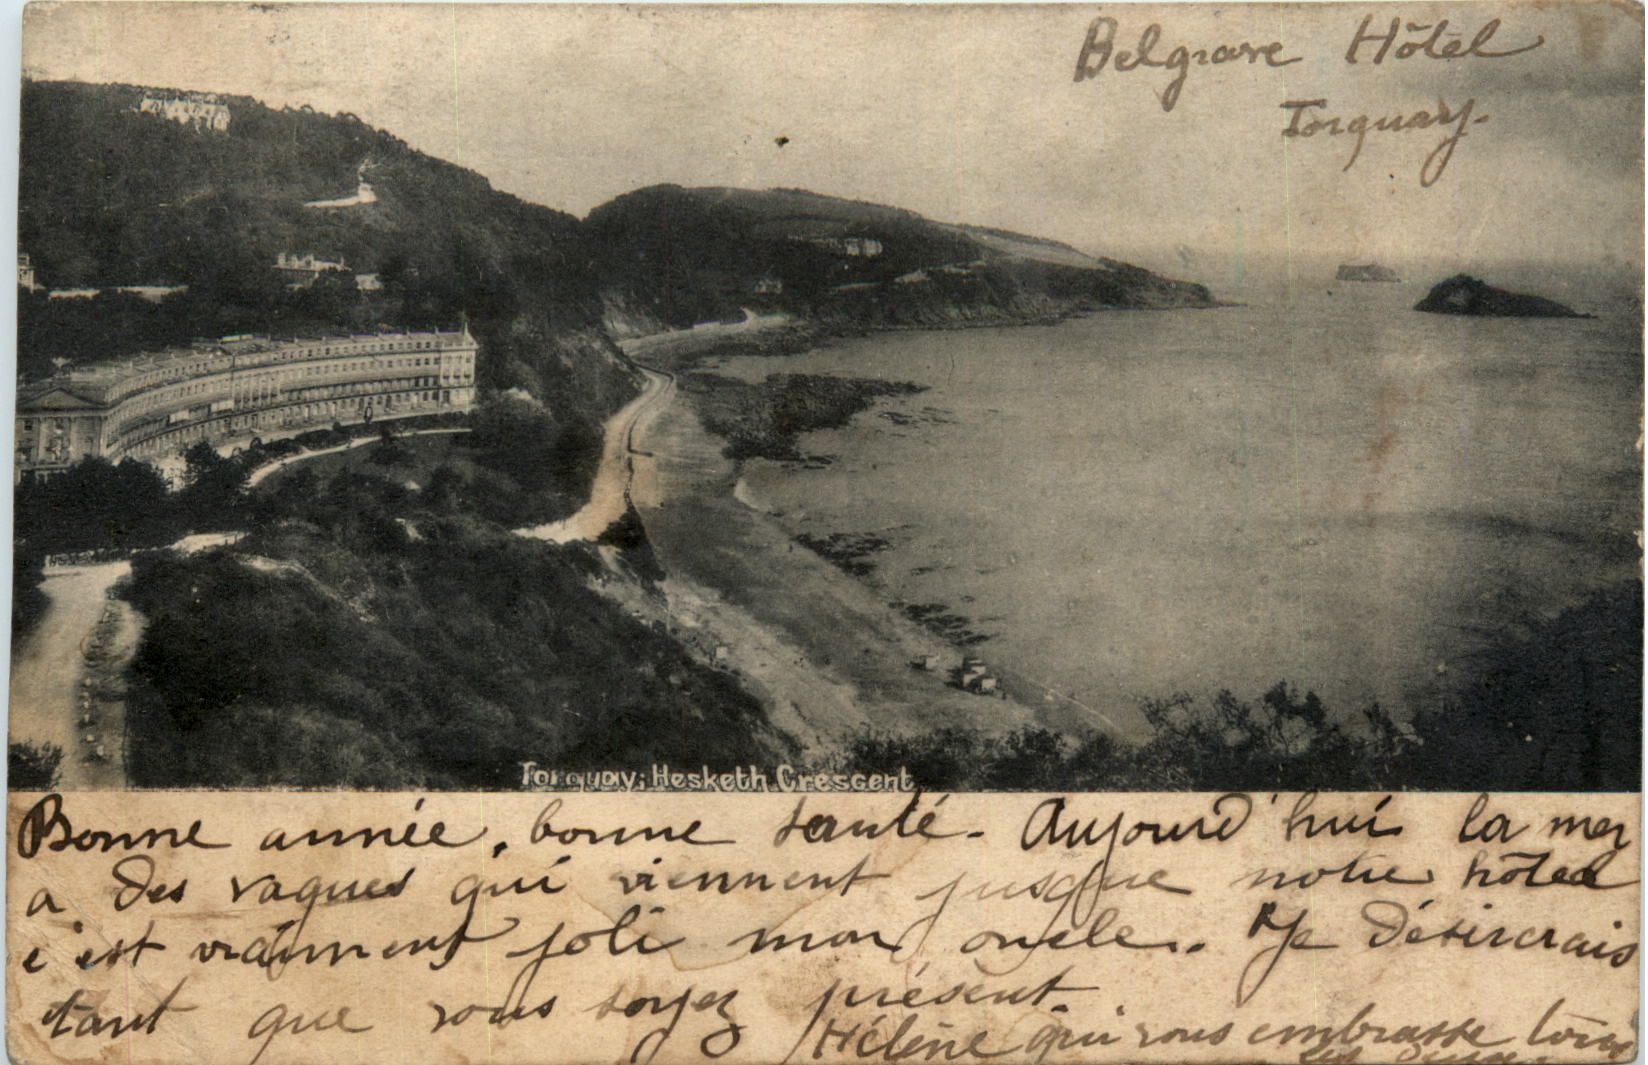 Belgrave Hôtel
Torquay.
Torquay; Hesketh Crescent
Bonne année, bonne santé. Aujourd'hui la mer
a des vagues qui viennent jusque notre hôtel
c'est vraiment joli mon oncle. Je désirerais
tant que vous soyez présent.
Hélène qui vous embrasse tous
les deux.